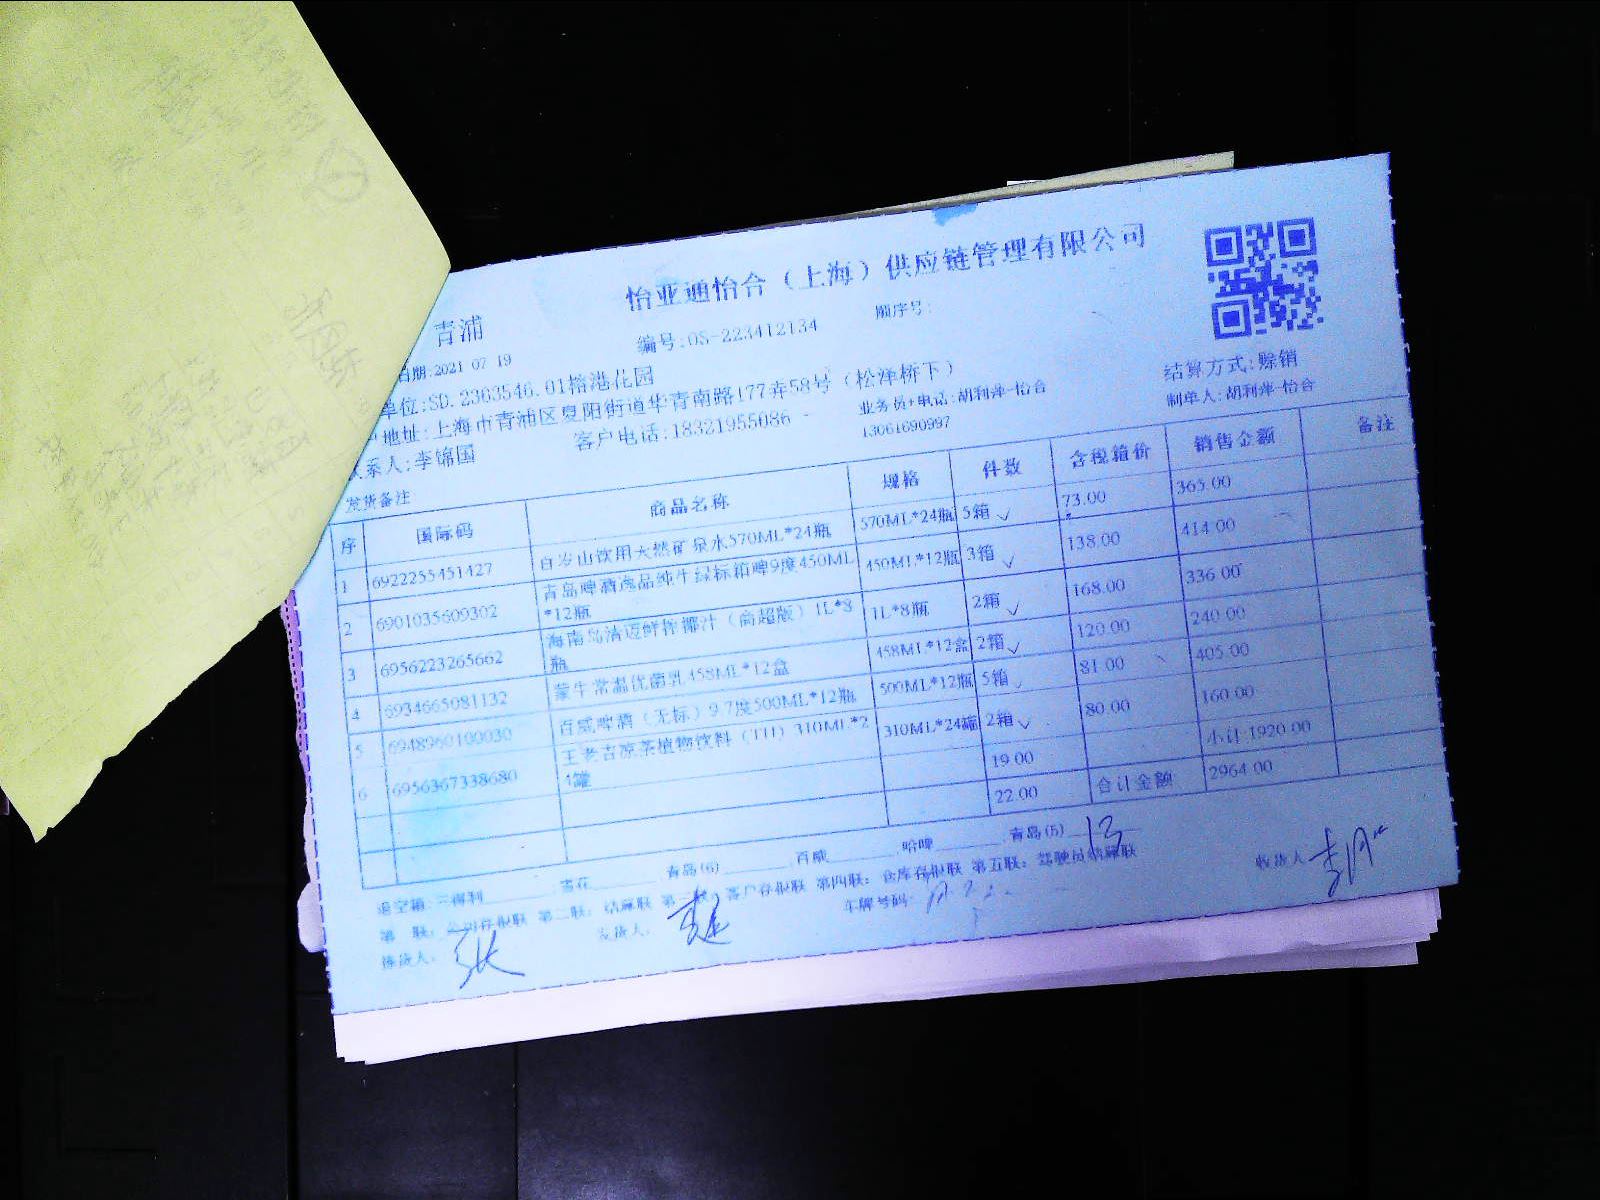 怡亚通怡合（上海）供应链管理有限公司
青浦
编号:OS-223412134
顺序号:
日期:2021 07 19
单位:SD.2363546.01榕港花园
结算方式:赊销
地址:上海市青浦区夏阳街道华青南路177弄58号（松泽桥下）
业务员+电话:胡利萍-怡合
13061690997
制单人:胡利萍-怡合
系人:李锦国
客户电话:18321955086
发货备注
序 国际码 商品名称 规格 件数 含税箱价 销售金额 备注
1 6922255451427 百岁山饮用天然矿泉水570ML*24瓶 570ML*24瓶 5箱 73.00 365.00
2 6901035609302 青岛啤酒逸品纯生绿标箱啤9度450ML*12瓶 450ML*12瓶 3箱 138.00 414.00
3 6956223265662 海南岛清迈鲜榨椰汁（商超版）1L*8瓶 1L*8瓶 2箱 168.00 336.00
4 6934665081132 蒙牛常温优菌乳458ML*12盒 458ML*12盒 2箱 120.00 240.00
5 6948960100030 百威啤酒（无标）9.7度500ML*12瓶 500ML*12瓶 5箱 81.00 405.00
6 6956367338680 王老吉凉茶植物饮料（TH）310ML*24罐 310ML*24罐 2箱 80.00 160.00
19.00 小计 1920.00
22.00 合计金额 2964.00
退空箱:三得利 雪花 青岛(6) 百威 哈啤 青岛(5) 13
第一联：公司存根联 第二联：结算联 第三联：客户存根联 第四联：仓库存根联 第五联：驾驶员结算联
拣货人: 张 发货人: 车牌号码: 收货人 李